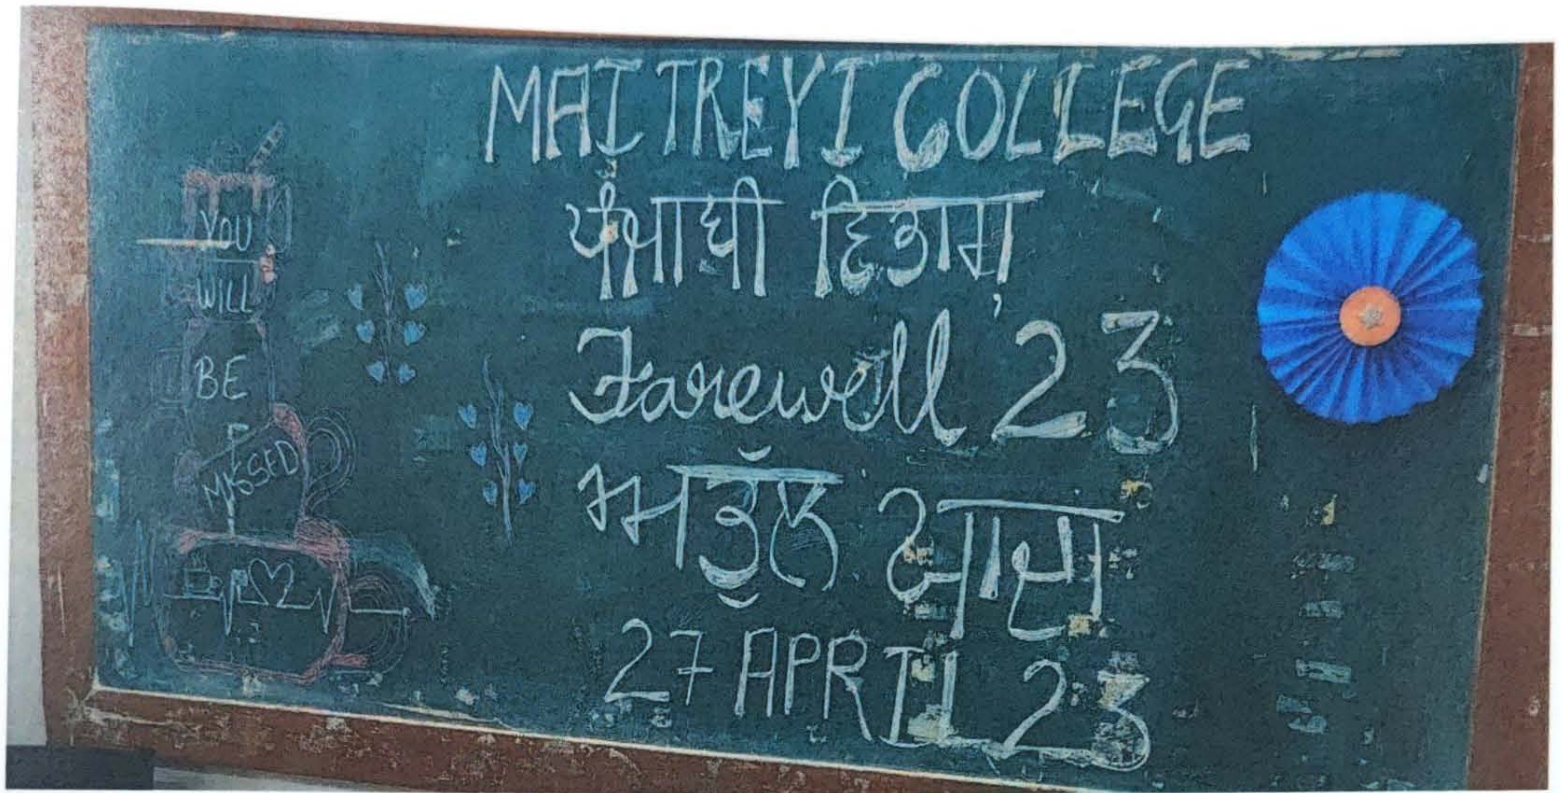 MAITREYI COLLEGE
ਪੰਜਾਬੀ ਵਿਭਾਗ
Farewell 23
ਅਤੁੱਲ ਯਾਦਾ
27 APRIL 23
YOU
WILL
BE
MISSED